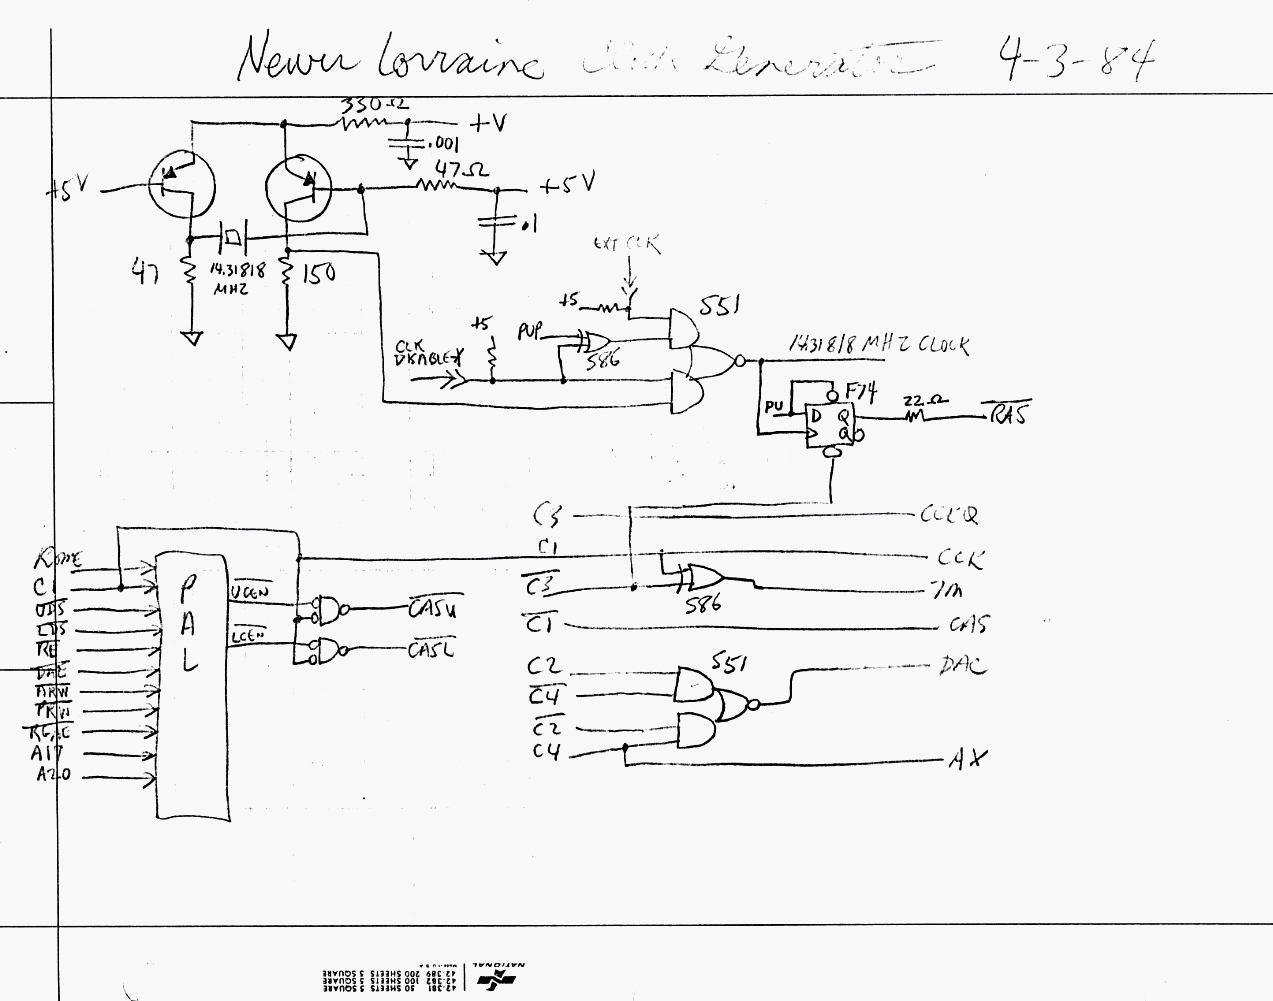 Newer Lorraine Clock Generator 4-3-84
330Ω
+V
.001
47Ω
+5V
+5V
.1
47
14.31818
MHZ
150
EXT CLK
+5
S51
+5
PUP
S86
CLK
DISABLE*
14.31818 MHZ CLOCK
F74
PU
D Q
Q
22Ω
RAS
C3
CCKQ
C1
CCK
C3
7M
S86
C1
CAS
C2
S51
DAC
C4
C2
C4
AX
C1
UDS
LDS
RE
DAE
ARW
PRW
A17
A20
PAL
UCEN
LCEN
CASU
CASL
NATIONAL
42-381 50 SHEETS 5 SQUARE
42-382 100 SHEETS 5 SQUARE
42-389 200 SHEETS 5 SQUARE